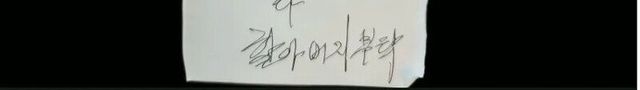 다
할아버지부탁